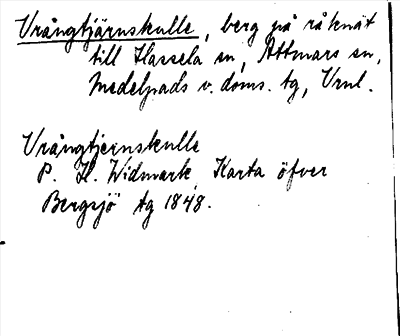 Vrångtjärnskulle, berg på råknät
till Hassela sn, Attmars sn,
Medelpads v. doms. tg, Vrnl.
Vrångtjernskulle
P. H. Widmark Karta öfver
Bergsjö tg 1848.